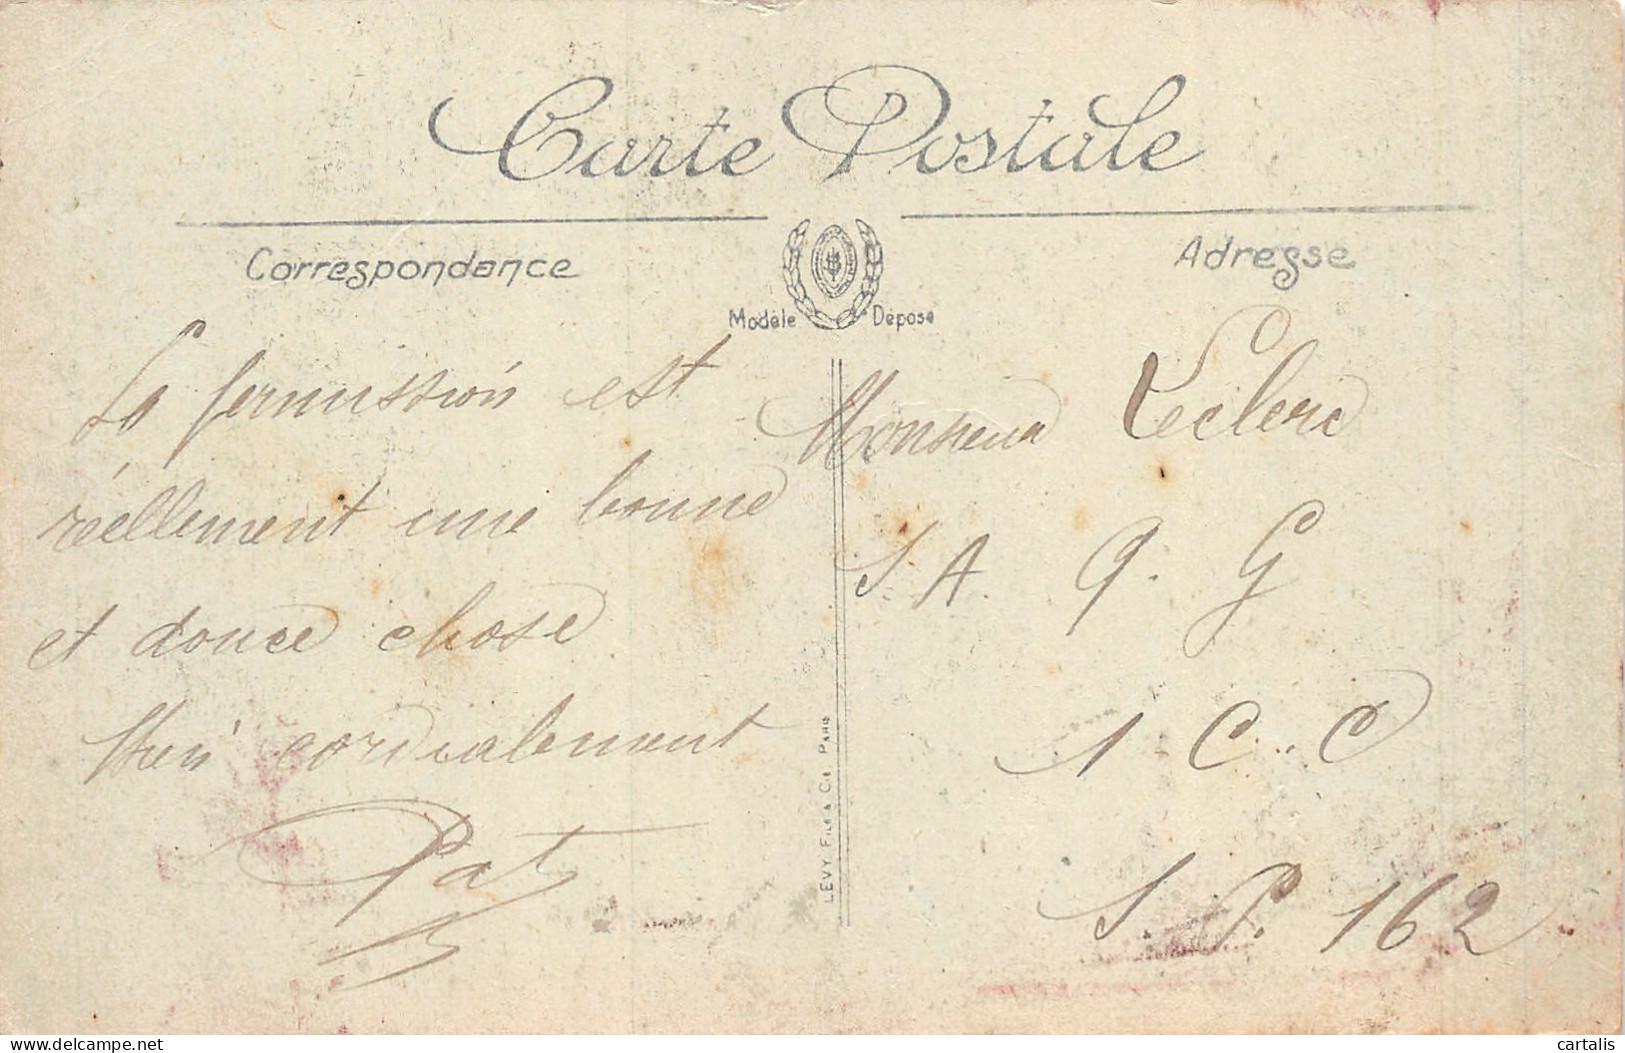 Carte Postale
Correspondance
Adresse
Modèle Déposé
La permission est
réellement une bonne
et douce chose
bien cordialement
Pat
Monsieur Leclerc
S. A. Q. G
1 C. C
S. P. 162
LEVY FILS & CIE PARIS
delcampe.net
cartalis